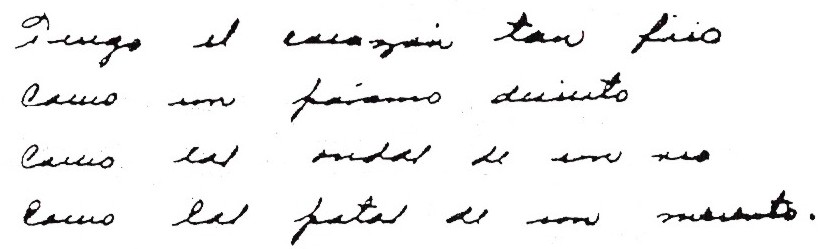 Tengo el corazón tan frio
Como un páramo desierto
Como las ondas de un rio
Como las patas de un muerto.